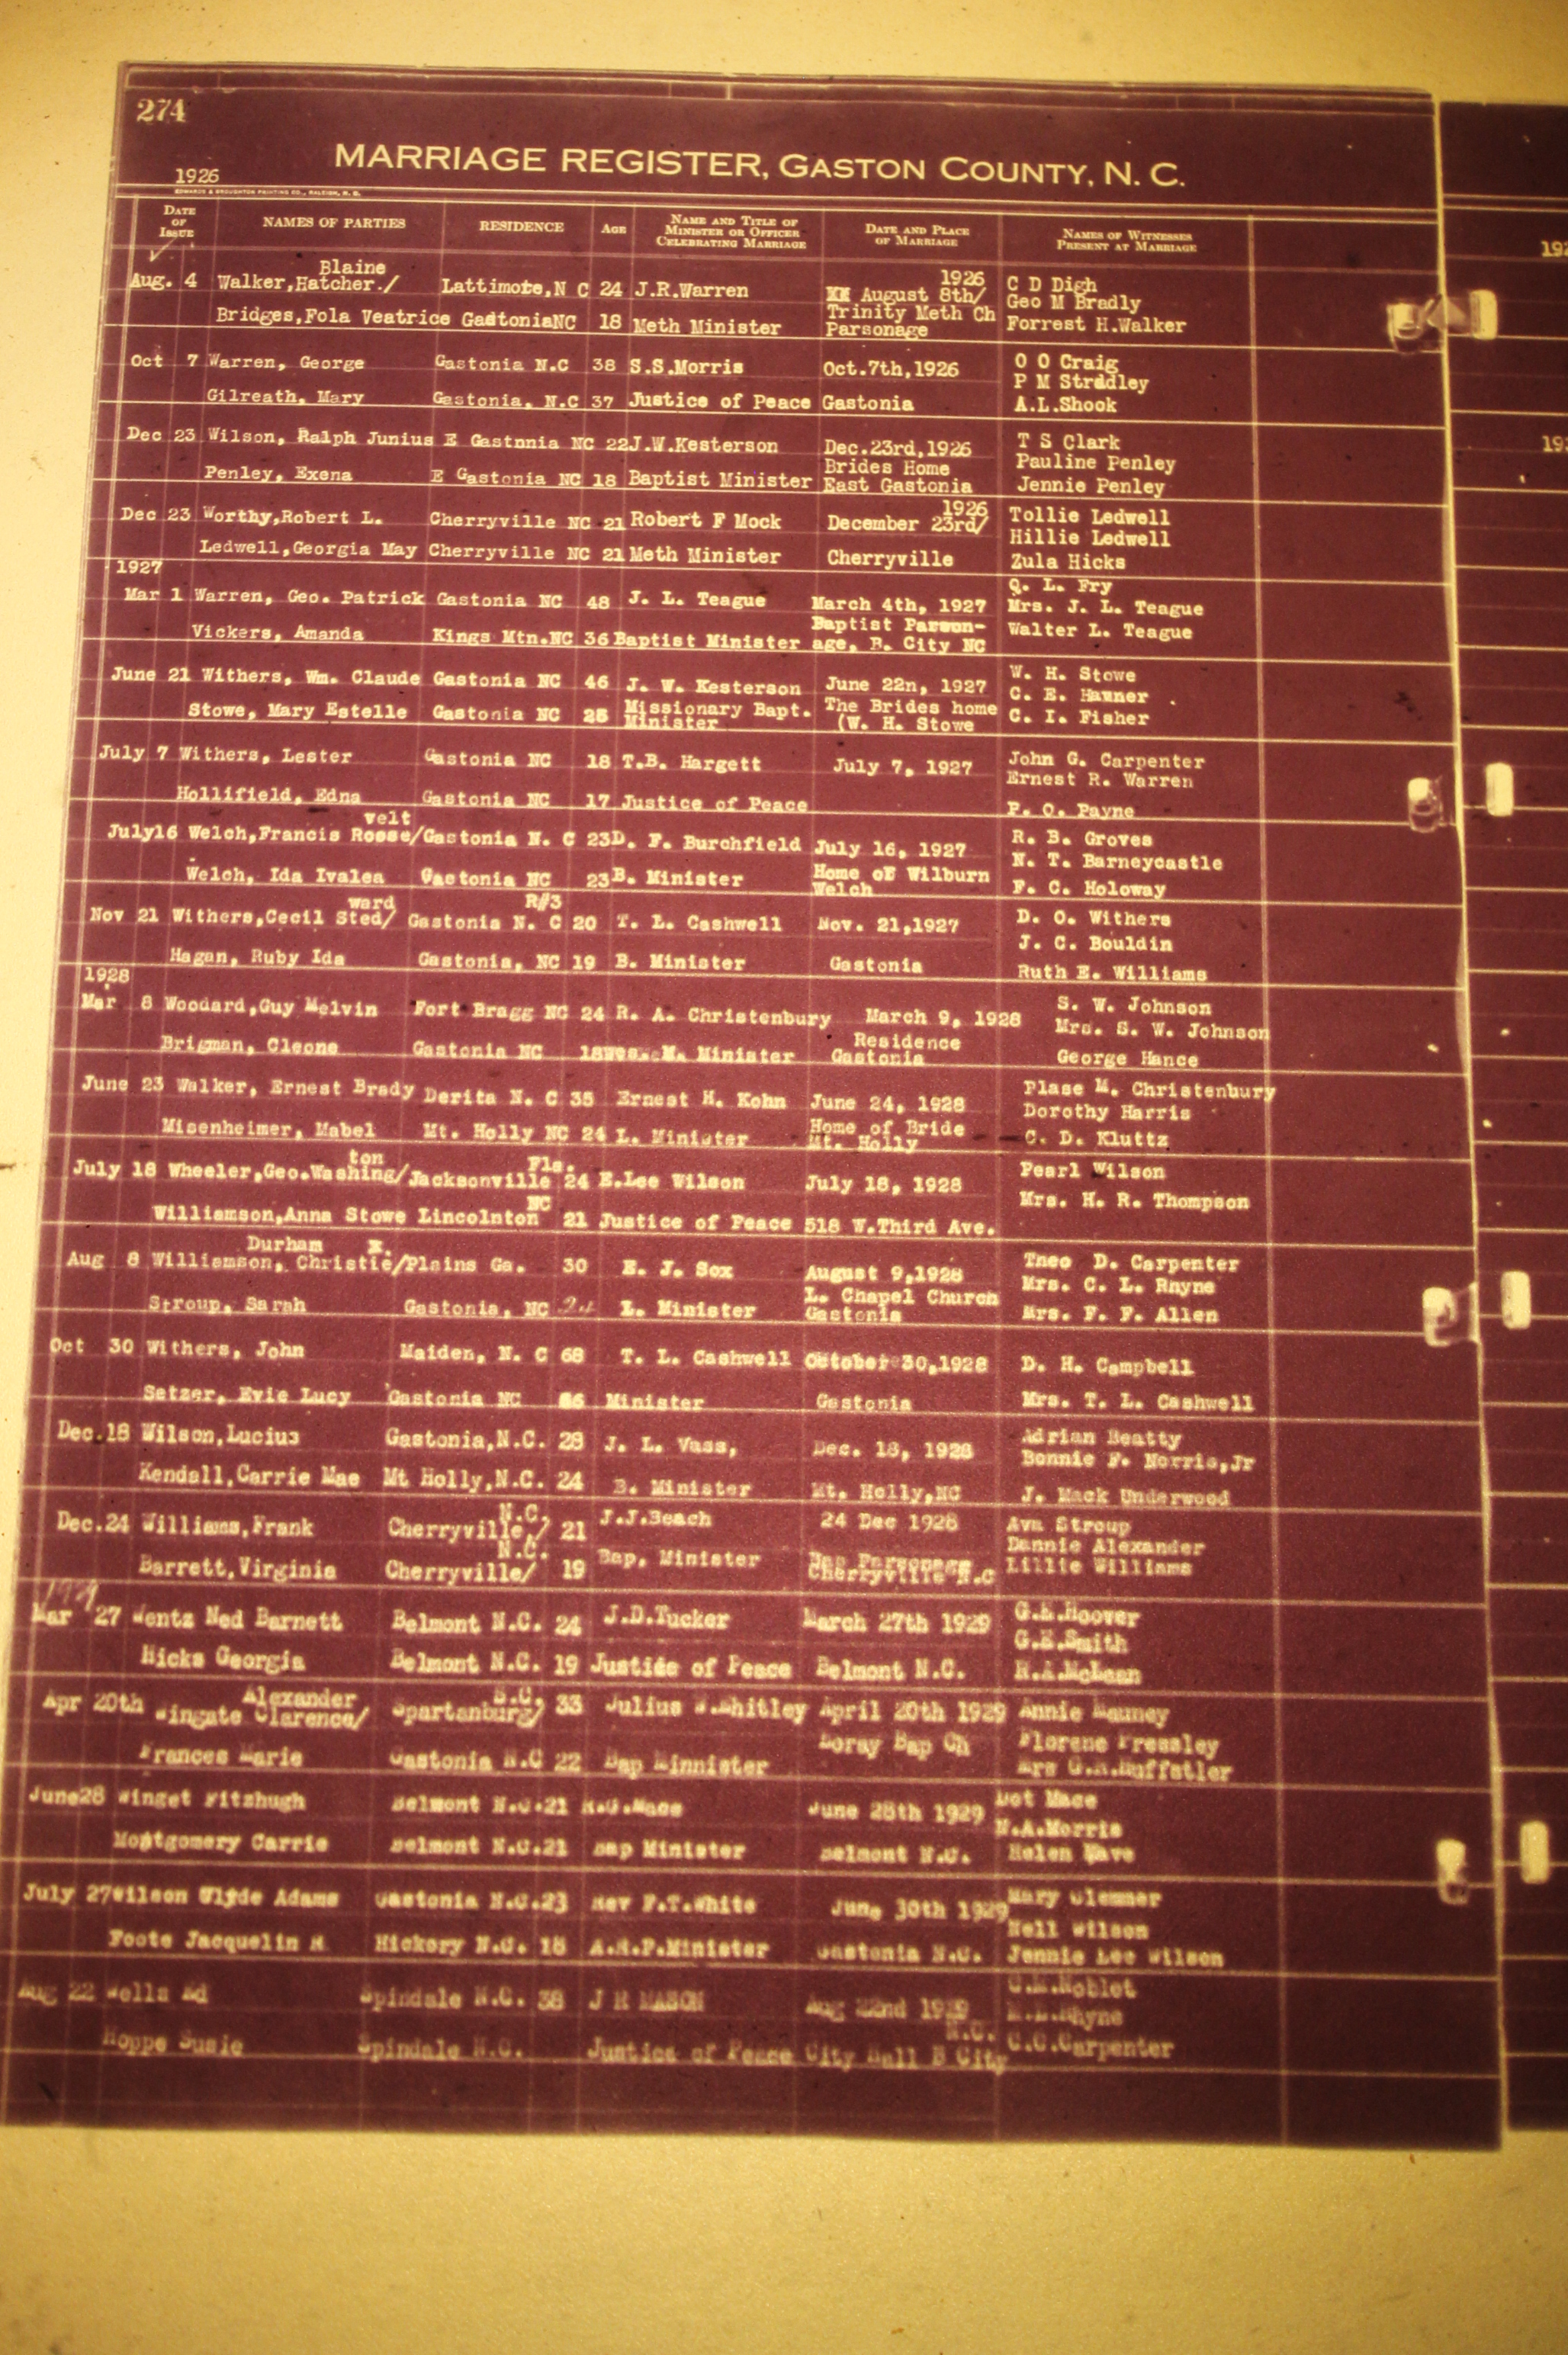 274
MARRIAGE REGISTER, GASTON COUNTY, N. C.
1926
EDWARDS & BROUGHTON PRINTING CO., RALEIGH, N. C.
DATE OF ISSUE NAMES OF PARTIES RESIDENCE AGE NAME AND TITLE OF MINISTER OR OFFICER CELEBRATING MARRIAGE DATE AND PLACE OF MARRIAGE NAMES OF WITNESSES PRESENT AT MARRIAGE
Blaine 1926 C D Digh
Aug. 4 Walker,Hatcher./ Lattimore,N C 24 J.R.Warren XX August 8th/ Geo M Bradly
Trinity Meth Ch
Bridges,Fola Veatrice GadtoniaNC 18 Meth Minister Parsonage Forrest H.Walker
O O Craig
Oct 7 Warren, George Gastonia N.C 38 S.S.Morris Oct.7th,1926 P M Straddley
Gilreath, Mary Gastonia, N.C 37 Justice of Peace Gastonia A.L.Shook
Dec 23 Wilson, Ralph Junius E Gastnnia NC 22J.W.Kesterson Dec.23rd,1926 T S Clark
Brides Home Pauline Penley
Penley, Exena E Gastonia NC 18 Baptist Minister East Gastonia Jennie Penley
1926
Dec 23 Worthy,Robert L. Cherryville NC 21 Robert F Mock December 23rd/ Tollie Ledwell
Hillie Ledwell
Ledwell,Georgia May Cherryville NC 21 Meth Minister Cherryville Zula Hicks
1927
Q. L. Fry
Mar 1 Warren, Geo. Patrick Gastonia NC 48 J. L. Teague March 4th, 1927 Mrs. J. L. Teague
Baptist Parson-
Vickers, Amanda Kings Mtn.NC 36 Baptist Minister age, B. City NC Walter L. Teague
W. H. Stowe
June 21 Withers, Wm. Claude Gastonia NC 46 J. W. Kesterson June 22n, 1927 C. E.
Stowe, Mary Estelle Gastonia NC 25 Missionary Bapt. The Brides home C. I. Fisher
Minister (W. H. Stowe
July 7 Withers, Lester Gastonia NC 18 T.B. Hargett July 7, 1927 John G. Carpenter
Ernest R. Warren
Hollifield, Edna Gastonia NC 17 Justice of Peace P. O. Payne
velt
July16 Welch,Francis Roose/Gastonia N. C 23D. F. Burchfield July 16, 1927 R. B. Groves
N. T. Barneycastle
Welch, Ida Ivalea Gastonia NC 23B. Minister Home oF Wilburn F. C. Holoway
Welch
ward R#3
Nov 21 Withers,Cecil Sted/ Gastonia N. C 20 T. L. Cashwell Nov. 21,1927 D. O. Withers
J. C. Bouldin
Hagan, Ruby Ida Gastonia, NC 19 B. Minister Gastonia Ruth E. Williams
1928
Mar 8 Woodard,Guy Melvin Fort Bragg NC 24 R. A. Christenbury March 9, 1928 S. W. Johnson
Mrs. S. W. Johnson
Residence
Brigman, Cleone Gastonia NC 18Wes. M. Minister Gastonia George Hance
June 23 Walker, Ernest Brady Derita N. C 35 Ernest H. Kohn June 24, 1928 Plase M. Christenbury
Dorothy Harris
Misenheimer, Mabel Mt. Holly NC 24 L. Minister Home of Bride C. D. Kluttz
Mt. Holly
ton Fla.
July 18 Wheeler,Geo.Washing/Jacksonville 24 E.Lee Wilson July 18, 1928 Pearl Wilson
NC Mrs. H. R. Thompson
Williamson,Anna Stowe Lincolnton 21 Justice of Peace 518 W.Third Ave.
Durham X.
Aug 8 Williamson, Christie/Plains Ga. 30 E. J. Sox August 9,1928 Theo D. Carpenter
L. Chapel Church Mrs. C. L. Rhyne
Stroup, Sarah Gastonia, NC 24 L. Minister Gastonia Mrs. F. F. Allen
Oct 30 Withers, John Maiden, N. C 68 T. L. Cashwell October 30,1928 D. H. Campbell
Setzer, Evie Lucy Gastonia NC Minister Gastonia Mrs. T. L. Cashwell
Dec.18 Wilson,Lucius Gastonia,N.C. 28 J. L. Vass, Dec. 18, 1928 Adrian Beatty
Bonnie F. Norris,Jr
Kendall,Carrie Mae Mt Holly,N.C. 24 B. Minister Mt. Holly,NC J. Mack Underwood
N.C.
Dec.24 Williams,Frank Cherryville,/ 21 J.J.Beach 24 Dec 1928 Ava Stroup
N.C. Dannie Alexander
Barrett,Virginia Cherryville/ 19 Bap, Minister Bap Parsonage Lillie Williams
Cherryville N.C
1929
Mar 27 Wentz Ned Barnett Belmont N.C. 24 J.D.Tucker March 27th 1929 G.E.Hoover
G.E.Smith
Hicks Georgia Belmont N.C. 19 Justice of Peace Belmont N.C. R.A.McLean
Alexander S.C.
Apr 20th Wingate Clarence/ Spartanburg/ 33 Julius W.Whitley April 20th 1929 Annie Mauney
Loray Bap Ch Florene Pressley
Frances Marie Gastonia N.C 22 Bap Minnister Mrs G.R.Huffstler
June28 Winget Fitzhugh Belmont N.C.21 Mace June 28th 1929 Dot Mace
N.A.Morris
Montgomery Carrie Belmont N.C.21 Bap Minister Belmont N.C. Helen
July 27Wilson Clyde Adams Gastonia N.C.23 Rev F.T.White June 30th 1929 Mary Clemmer
Nell Wilson
Foote Jacquelin Hickory N.C. 18 A.R.P.Minister Gastonia N.C. Jennie Lee Wilson
Aug 22 Wells Ed Spindale N.C. 38 J R MASON Aug 22nd 1929 Noblet
N.C. Rhyne
Hoppe Susie Spindale N.C. Justice of Peace City Hall B City C.C.Carpenter